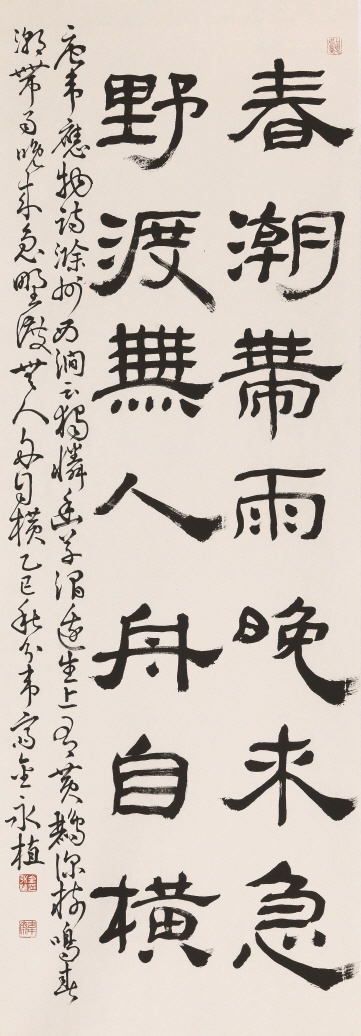 春潮帶雨晚來急
野渡無人舟自橫
唐韋應物詩滁州西澗云獨憐幽草澗邊生上有黃鸝深樹鳴春
潮帶雨晚來急野渡無人舟自橫乙巳秋分韋齋金永植